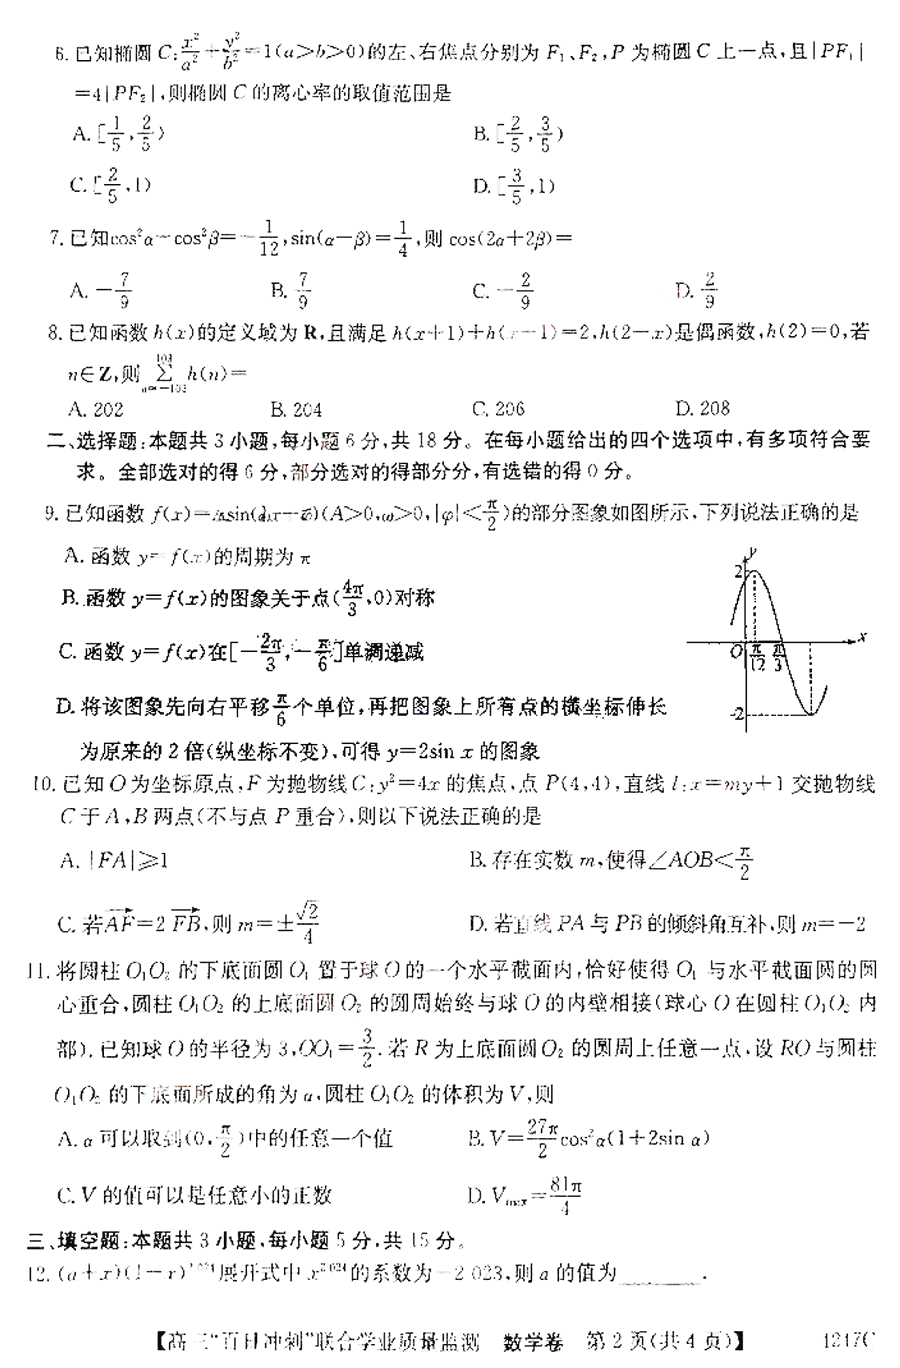 6. 已知椭圆 C: x²/a² + y²/b² = 1(a>b>0)的左、右焦点分别为 F₁、F₂, P 为椭圆 C 上一点,且|PF₁|
=4|PF₂|,则椭圆 C 的离心率的取值范围是
A. [1/5, 2/5) B. [2/5, 3/5)
C. [2/5, 1) D. [3/5, 1)
7. 已知cos²α-cos²β=-1/12, sin(α-β)=1/4, 则 cos(2α+2β)=
A. -7/9 B. 7/9 C. -2/9 D. 2/9
8. 已知函数 h(x)的定义域为 R,且满足 h(x+1)+h(x-1)=2,h(2-x)是偶函数,h(2)=0,若
n∈Z,则 Σ h(n)=
A. 202 B. 204 C. 206 D. 208
二、选择题:本题共 3 小题,每小题 6 分,共 18 分。在每小题给出的四个选项中,有多项符合要
求。全部选对的得 6 分,部分选对的得部分分,有选错的得 0 分。
9. 已知函数 f(x)= (A>0,ω>0,|φ|<π/2)的部分图象如图所示,下列说法正确的是
A. 函数 y=f(x)的周期为 π
B. 函数 y=f(x)的图象关于点(4π/3,0)对称
C. 函数 y=f(x)在[-2π/3,-π/6]单调递减
D. 将该图象先向右平移 π/6 个单位,再把图象上所有点的横坐标伸长
为原来的 2 倍(纵坐标不变),可得 y=2sin x 的图象
y
2
O π/12 π/3 x
-2
10. 已知 O 为坐标原点,F 为抛物线 C:y²=4x 的焦点,点 P(4,4),直线 l:x=my+1 交抛物线
C 于 A,B 两点(不与点 P 重合),则以下说法正确的是
A. |FA|≥1 B. 存在实数 m,使得∠AOB<π/2
C. 若AF=2FB,则 m=±√2/4 D. 若直线 PA 与 PB 的倾斜角互补,则 m=-2
11. 将圆柱 O₁O₂ 的下底面圆 O₁ 置于球 O 的一个水平截面内,恰好使得 O₁ 与水平截面圆的圆
心重合,圆柱 O₁O₂ 的上底面圆 O₂ 的圆周始终与球 O 的内壁相接(球心 O 在圆柱 O₁O₂ 内
部). 已知球 O 的半径为 3,OO₁=3/2. 若 R 为上底面圆 O₂ 的圆周上任意一点,设 RO 与圆柱
O₁O₂ 的下底面所成的角为 α,圆柱 O₁O₂ 的体积为 V,则
A. α 可以取到(0,π/2)中的任意一个值 B. V=27π/2 cos²α(1+2sin α)
C. V 的值可以是任意小的正数 D. Vmax=81π/4
三、填空题:本题共 3 小题,每小题 5 分,共 15 分。
12. (a+x)(1-x) 展开式中 x²⁰²⁴ 的系数为-2 023,则 a 的值为______.
【高三“百日冲刺”联合学业质量监测 数学卷 第 2 页(共 4 页)】 1217C